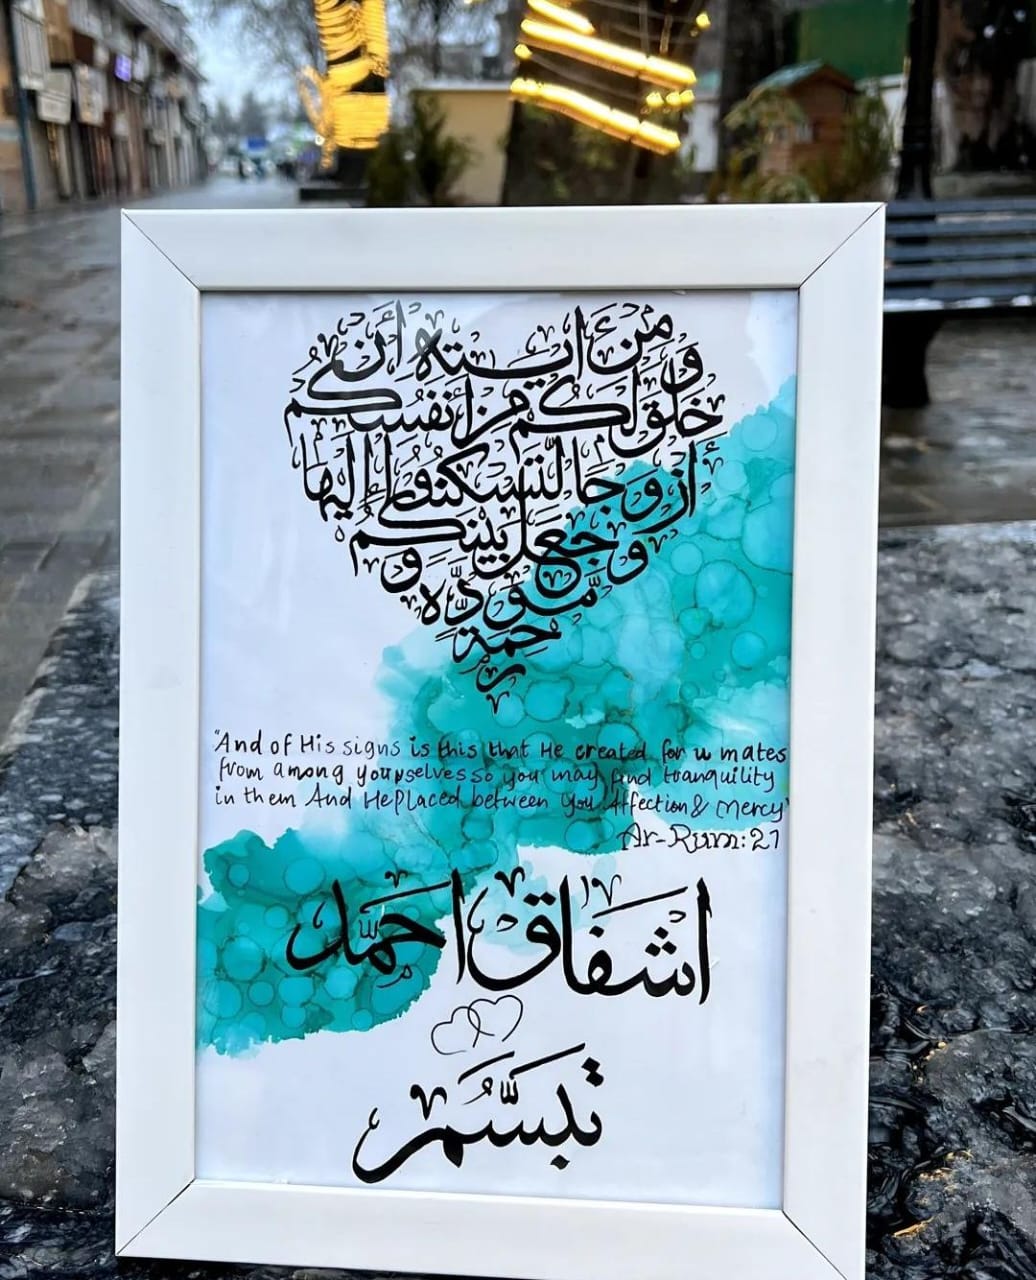 و من ءايته أن
خلق لكم من أنفسكم
أزوجا لتسكنوا إليها
و جعل بينكم
مودة و
رحمة
"And of His signs is this that He created for u mates
from among yourselves so you may find tranquility
in them And He Placed between you Affection & Mercy"
Ar-Rum:21
اشفاق احمد
تبسم